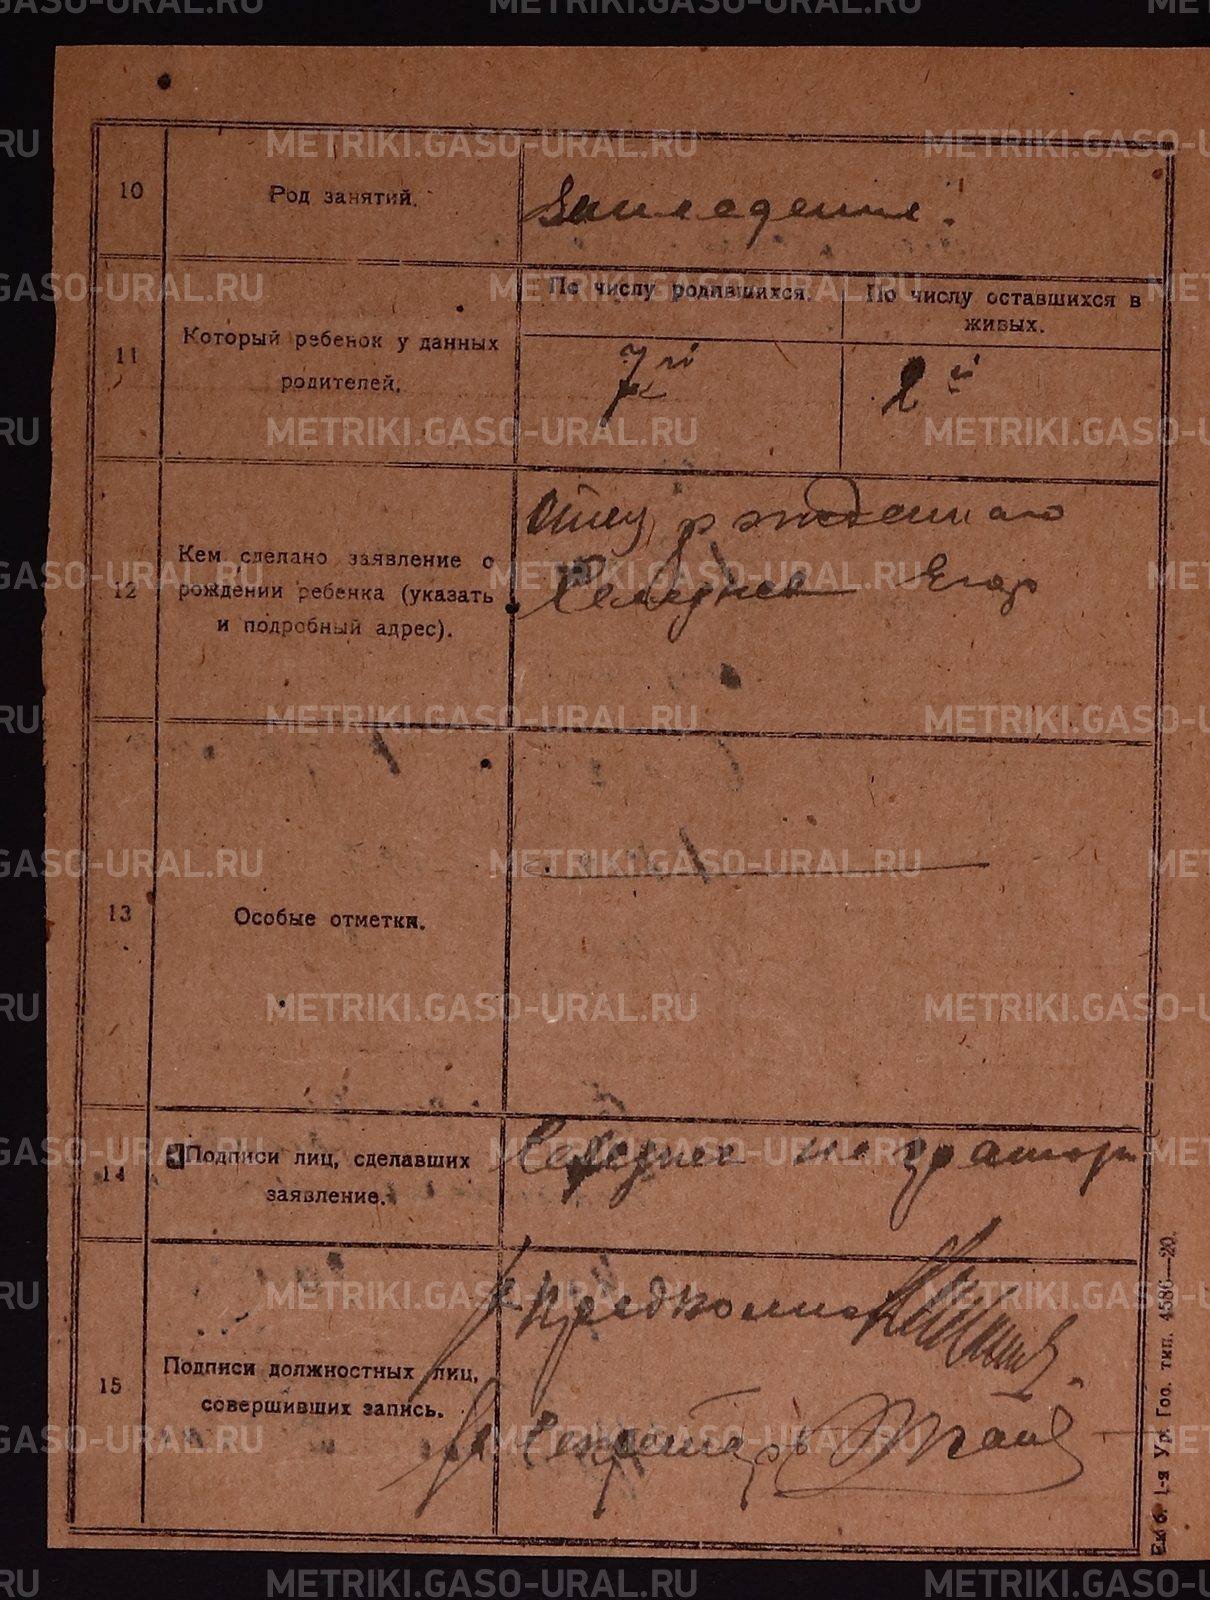 10
Род занятий.
Земледелие.
11
Который ребенок у данных
родителей.
По числу родившихся.
По числу оставшихся в
живых.
7й
2й
12
Кем сделано заявление о
рождении ребенка (указать
и подробный адрес).
Отец
Егор
13
Особые отметки.
14
Подписи лиц, сделавших
заявление.
15
Подписи должностных лиц,
совершивших запись.
Секретарь
1-я Ур. Гос. тип. 4586—20.
METRIKI.GASO-URAL.RU